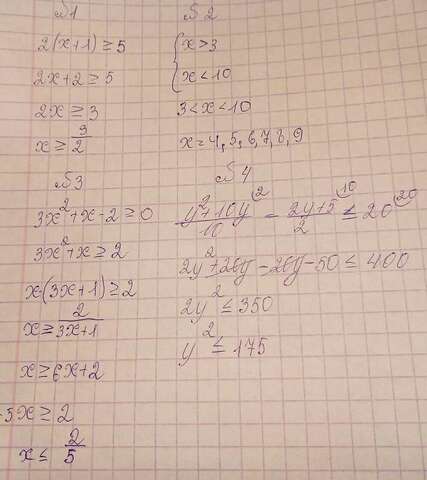 №1
2(x+1) ≥ 5
2x+2 ≥ 5
2x ≥ 3
x ≥ 3/2
№2
{ x > 3
{ x < 10
3 < x < 10
x = 4, 5, 6, 7, 8, 9
№3
3x²+x-2 ≥ 0
3x²+x ≥ 2
x(3x+1) ≥ 2
x ≥ 2/3x+1
x ≥ 6x+2
-5x ≥ 2
x ≤ 2/5
№4
y²+10y/10 (2 - 2y+5/2 (10 ≤ 20 (20
2y²+20y-20y-50 ≤ 400
2y² ≤ 350
y² ≤ 175